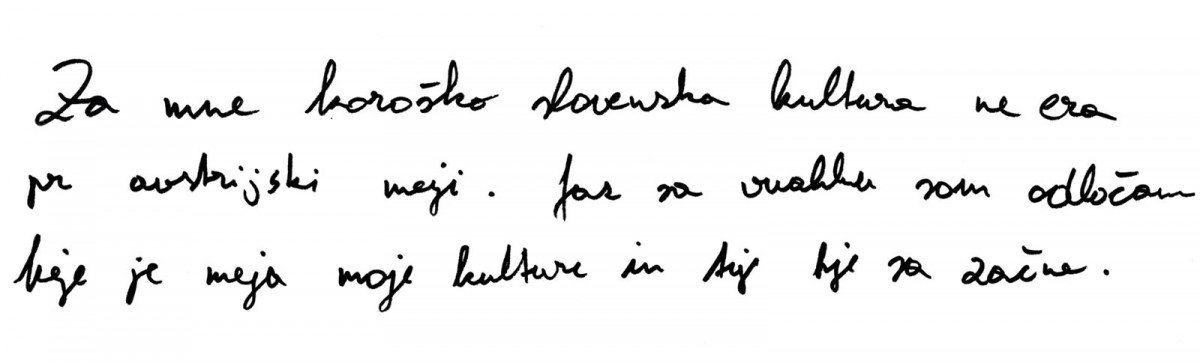 Za mne koroško slovenska kultura ne era
pr avstrijski meji. Jaz sa sam odločam
je meja moje kulture in sa začne.